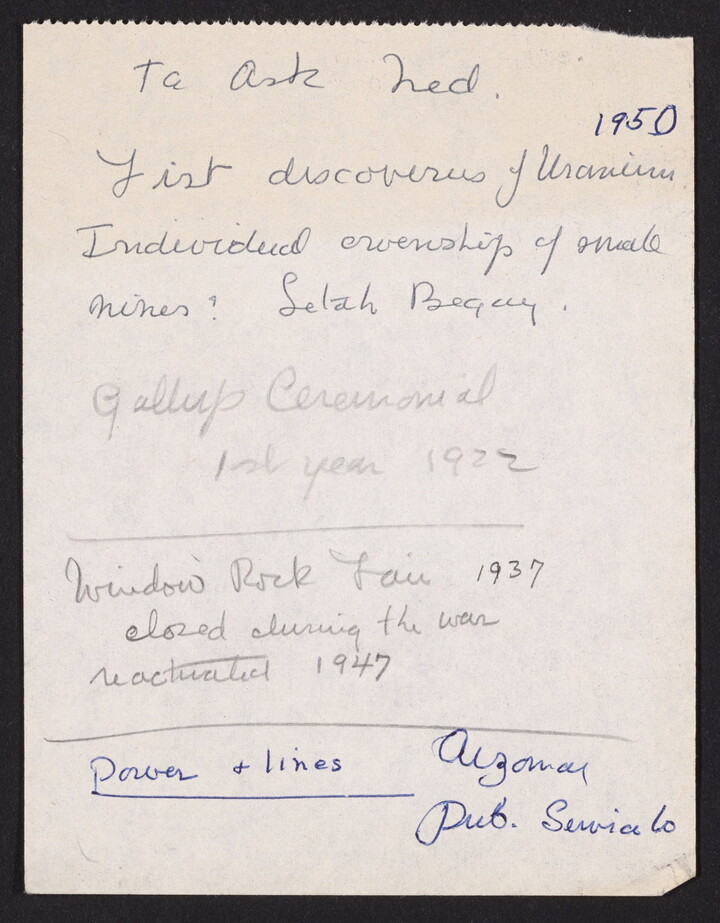 To Ask Ned.
1950
First discoverers of Uranium
Individual ownership of small
mines? Begay.
Gallup Ceremonial
1st year 1922
Window Rock Fair 1937
closed during the war
reactivated 1947
Power & lines
Pub. Service Co